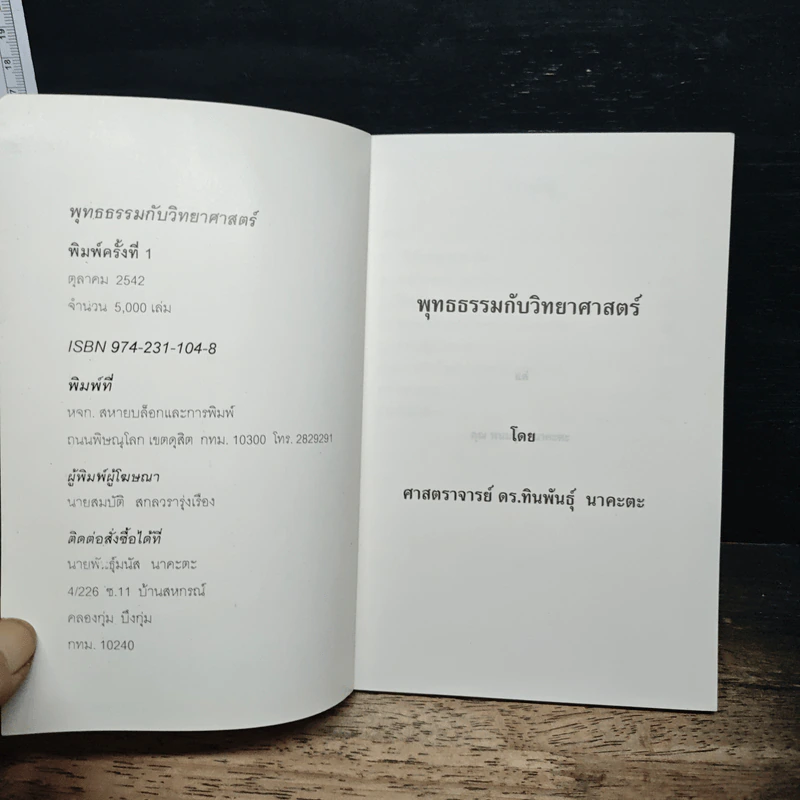 พุทธธรรมกับวิทยาศาสตร์
พิมพ์ครั้งที่ 1
ตุลาคม 2542
จำนวน 5,000 เล่ม
ISBN 974-231-104-8
พิมพ์ที่
หจก. สหายบล็อกและการพิมพ์
ถนนพิษณุโลก เขตดุสิต กทม. 10300 โทร. 2829291
ผู้พิมพ์ผู้โฆษณา
นายสมบัติ สกลวรารุ่งเรือง
ติดต่อสั่งซื้อได้ที่
นายพันธุ์มนัส นาคะตะ
4/226 ซ.11 บ้านสหกรณ์
คลองกุ่ม บึงกุ่ม
กทม. 10240
พุทธธรรมกับวิทยาศาสตร์
โดย
ศาสตราจารย์ ดร.ทินพันธุ์ นาคะตะ
17
18
19